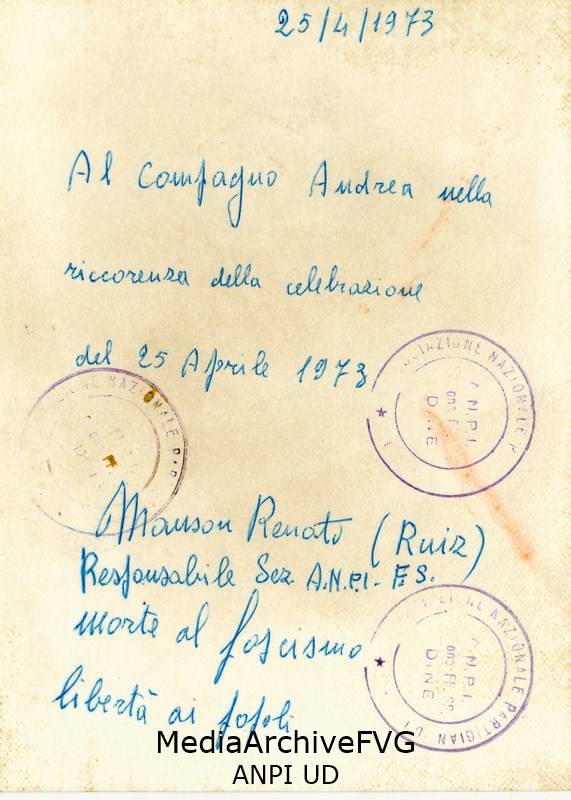 25/4/1973
Al Compagno Andrea nella
riccorenza della celebrazione
del 25 Aprile 1973
Renato (Ruiz)
Responsabile Sez A.N.P.I - F.S.
morte al fascismo
libertà ai popoli
NAZIONALE
NAZIONALE
A.N.P.I.
DINE
NAZIONALE PARTIGIAN
N.P.I.
DINE
MediaArchiveFVG
ANPI UD